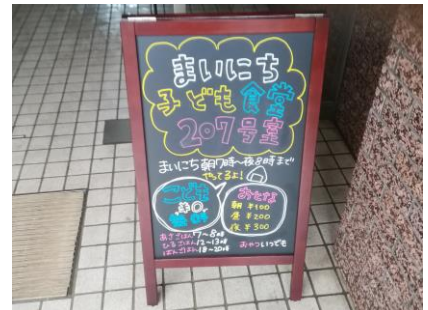 まいにち
子ども食堂
207号室
まいにち朝7時〜夜8時まで
やってるよ!
こども
¥0
無料
おとな
朝 ¥100
昼 ¥200
夜 ¥300
あさごはん 7〜8時
ひるごはん 12〜13時
ばんごはん 18〜20時
おやつ いつでも